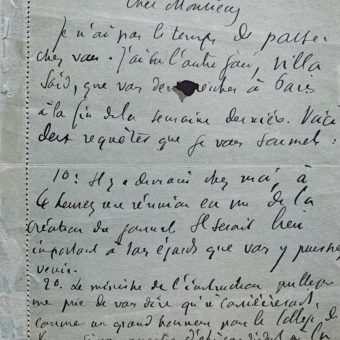 Cher Monsieur
Je n'ai pas le temps de passer
chez vous. J'ai su l'autre jour, villa
Saïd, que vous à Paris
à la fin de la semaine dernière. Voici
deux requêtes que je vous soumets:
1o: Il y a demain chez moi, à
6 heures une réunion en vue de la
création du journal Il serait bien
important à tous égards que vous y puissiez
venir.
2o. Le ministre de l'instruction publique
me prie de vous dire qu'il considérerait,
comme un grand honneur pour le Collège de